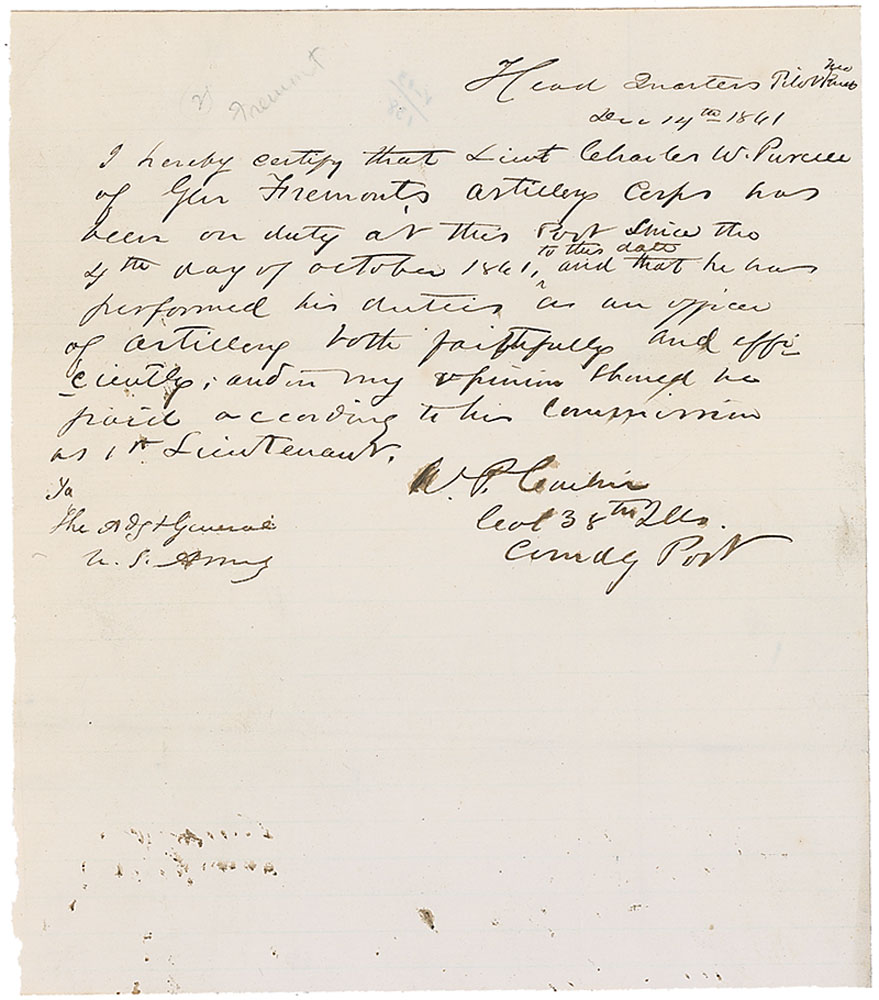 Fremont
Head Quarters Pilot Knob Mo
Dec 14th 1861
I hereby certify that Lieut Charles W. Purcell
of Gen Fremont's Artillery Corps has
been on duty at this Post since the
4th day of October 1861, to this date and that he has
performed his duties as an officer
of Artillery both faithfully and effi-
ciently; and in my opinion should be
paid according to his Commission
as 1st Lieutenant.
W. P. Carlin
Col 38th Ills.
Comdg Post
To
The Adgt General
U. S. Army